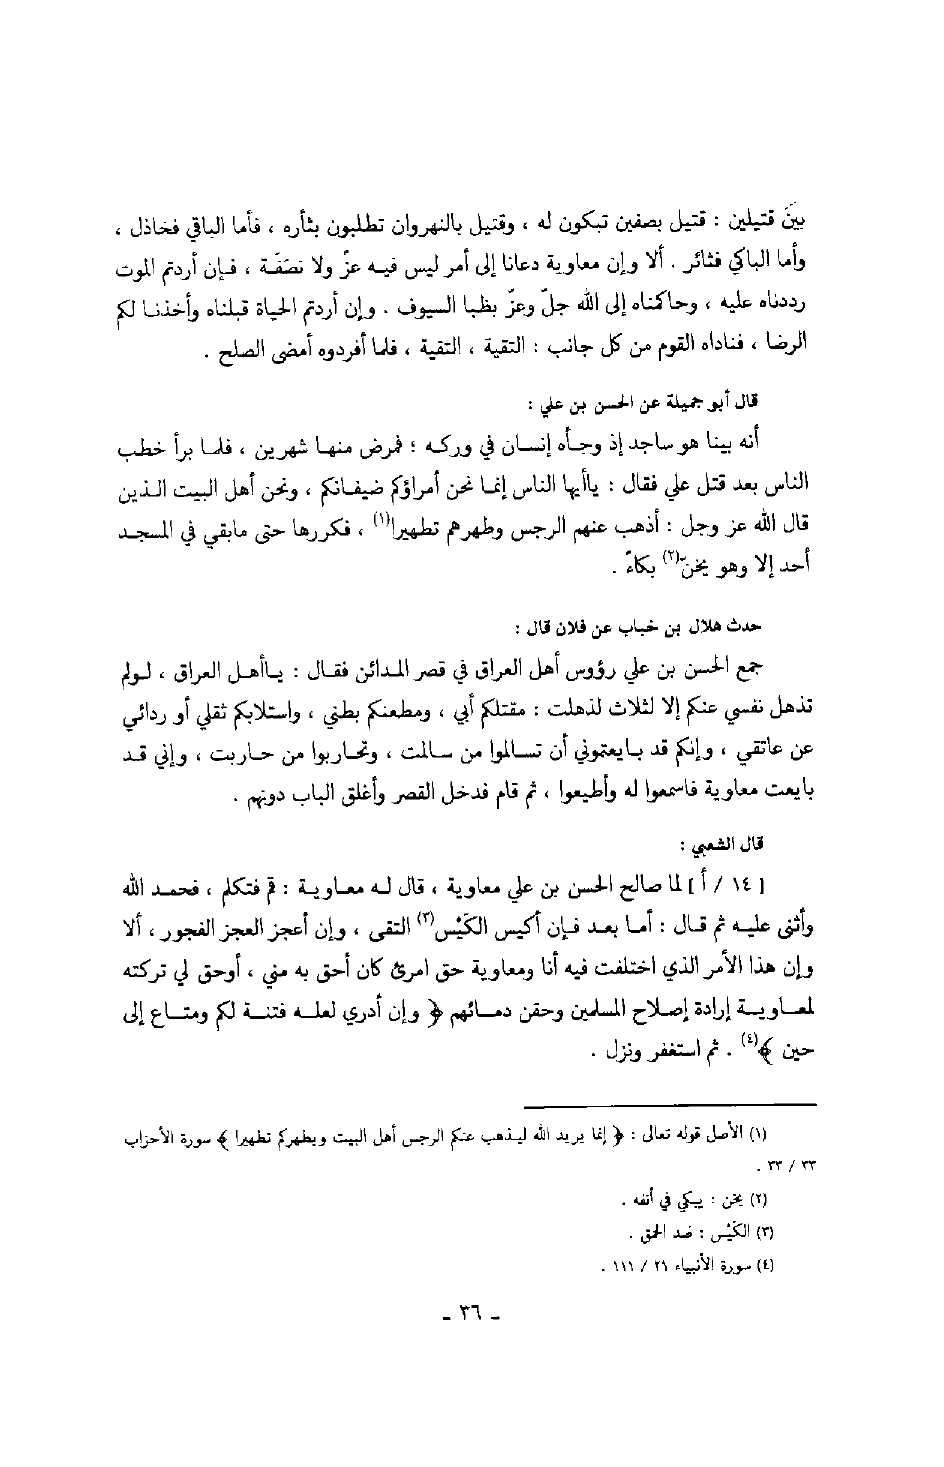 بينَ قتيلين : قتيل بصفين تبكون له ، وقتيل بالنهروان تطلبون بثأره ، فأما الباقي فخاذل ،
وأما الباكي فثائر . ألا وإن معاوية دعانا إلى أمر ليس فيه عزّ ولا نصَفَة ، فإن أردتم الموت
رددناه عليه ، وحاكمناه إلى الله جلّ وعزّ بظبا السيوف . وإن أردتم الحياة قبلناه وأخذنا لكم
الرضا ، فناداه القوم من كل جانب : التقية ، التقية ، فلما أفردوه أمضى الصلح .
قال أبو جميلة عن الحسن بن علي :
أنه بينا هو ساجد إذ وجأه إنسان في وركه ؛ فمرض منها شهرين ، فلما برأ خطب
الناس بعد قتل علي فقال : ياأيها الناس إنما نحن أمراؤكم ضيفانكم ، ونحن أهل البيت الذين
قال الله عز وجل : أذهب عنهم الرجس وطهرهم تطهيرا(١) ، فكررها حتى مابقي في المسجد
أحد إلا وهو يخنّ(٢) بكاءً .
حدث هلال بن خباب عن فلان قال :
جمع الحسن بن علي رؤوس أهل العراق في قصر المدائن فقال : ياأهل العراق ، لولم
تذهل نفسي عنكم إلا لثلاث لذهلت : مقتلكم أبي ، ومطعنكم بطني ، واستلابكم ثقلي أو ردائي
عن عاتقي ، وإنكم قد بايعتموني أن تسالموا من سالمت ، وتحاربوا من حاربت ، وإني قد
بايعت معاوية فاسمعوا له وأطيعوا ، ثم قام فدخل القصر وأغلق الباب دونهم .
قال الشعبي :
[ ١٤ / أ ] لما صالح الحسن بن علي معاوية ، قال له معاوية : قم فتكلم ، فحمد الله
وأثنى عليه ثم قال : أما بعد فإن أكيس الكَيْس(٣) التقى ، وإن أعجز العجز الفجور ، ألا
وإن هذا الأمر الذي اختلفت فيه أنا ومعاوية حق امرئ كان أحق به مني ، أوحق لي تركته
لمعاوية إرادة إصلاح المسلمين وحقن دمائهم ﴿ وإن أدري لعله فتنة لكم ومتاع إلى
حين ﴾(٤) . ثم استغفر ونزل .
(١) الأصل قوله تعالى : ﴿ إنما يريد الله ليذهب عنكم الرجس أهل البيت ويطهركم تطهيرا ﴾ سورة الأحزاب
٣٣ / ٣٣ .
(٢) يخن : يبكي في أنفه .
(٣) الكَيْس : ضد الحمق .
(٤) سورة الأنبياء ٢١ / ١١١ .
- ٣٦ -